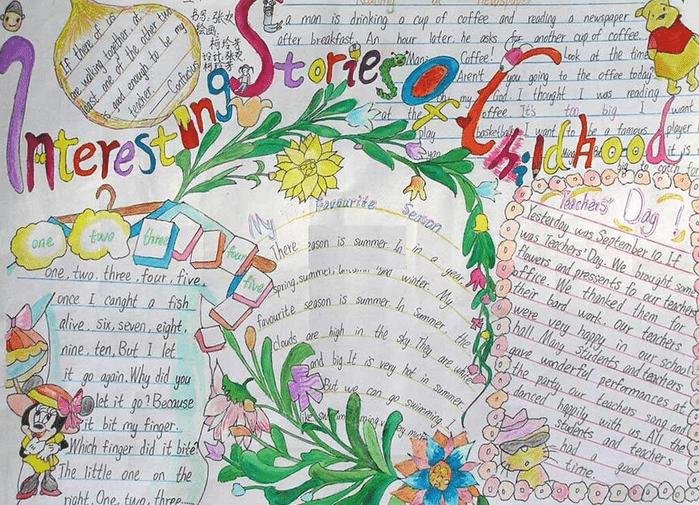 Interesting Stories of Childhood
If there
are walking together, at
least one of the other two
is good enough to be my
teacher. Confucius
a man is drinking a cup of coffee and reading a newspaper
after breakfast. An hour later, he asks for another cup of coffee.
Coffee! Look at the time
Aren't you going to the office today
I thought I was reading
at the office. It's too big I want
play basketball. I want to be a famous player
one two three four five
one, two, three, four, five,
once I caught a fish
alive. six, seven, eight,
nine, ten, But I let
it go again. Why did you
let it go? Because
it bit my finger.
Which finger did it bite
The little one on the
right. One, two, three......
My Favourite Season
There season is summer. In in a year,
spring, summer, and winter. My
favourite season is summer. In summer the
clouds are high in the sky. They are white
and big. It is very hot in summer.
But we can go swimming. I
Teachers' Day!
Yesterday was September 10. If
was Teachers' Day. We brought some
flowers and pressents fo our teachers
office. We thanked them for
their bard work. Our teachers
were very happy in our school
hall. Many students and teachers
gave wonderful performances at
the party. our teachers song and
danced happily with us. All the
students and teachers
had a good
time.